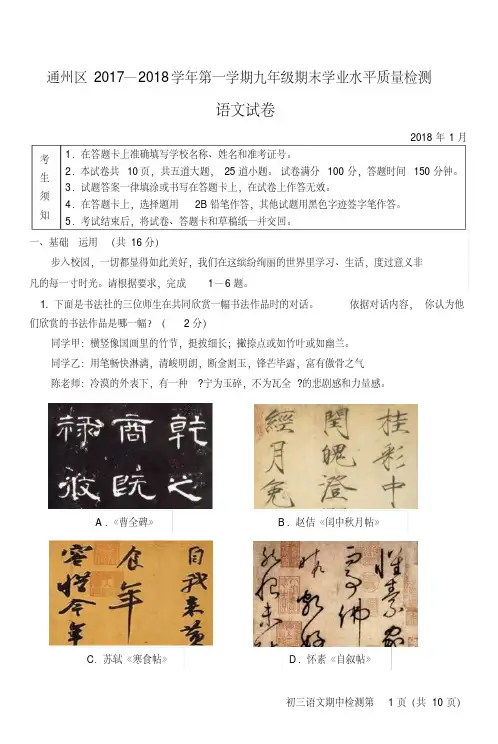 通州区 2017—2018学年第一学期九年级期末学业水平质量检测
语文试卷
2018 年 1 月
考生须知
1．在答题卡上准确填写学校名称、姓名和准考证号。
2．本试卷共 10页，共五道大题， 25 道小题。 试卷满分 100 分，答题时间 150 分钟。
3．试题答案一律填涂或书写在答题卡上，在试卷上作答无效。
4．在答题卡上，选择题用 2B 铅笔作答，其他试题用黑色字迹签字笔作答。
5．考试结束后，将试卷、答题卡和草稿纸一并交回。
一、基础 运用 （共 16 分）
步入校园，一切都显得如此美好，我们在这缤纷绚丽的世界里学习、生活，度过意义非
凡的每一寸时光。请根据要求，完成 1—6 题。
1. 下面是书法社的三位师生在共同欣赏一幅书法作品时的对话。 依据对话内容， 你认为他
们欣赏的书法作品是哪一幅？（ 2 分）
同学甲：横竖像国画里的竹节，挺拔细长；撇捺点或如竹叶或如幽兰。
同学乙：用笔畅快淋漓，清峻明朗，断金割玉，锋芒毕露，富有傲骨之气
陈老师：冷漠的外表下，有一种 ?宁为玉碎，不为瓦全 ?的悲剧感和力量感。
乾之
商既
禄攸
桂彩中
闰魄澄
經月免
A．《曹全碑》
B．赵佶《闰中秋月帖》
自我来黄
食年
容惜今年
懷素家
C. 苏轼《寒食帖》
D．怀素《自叙帖》
初三语文期中检测第 1 页（共 10 页）